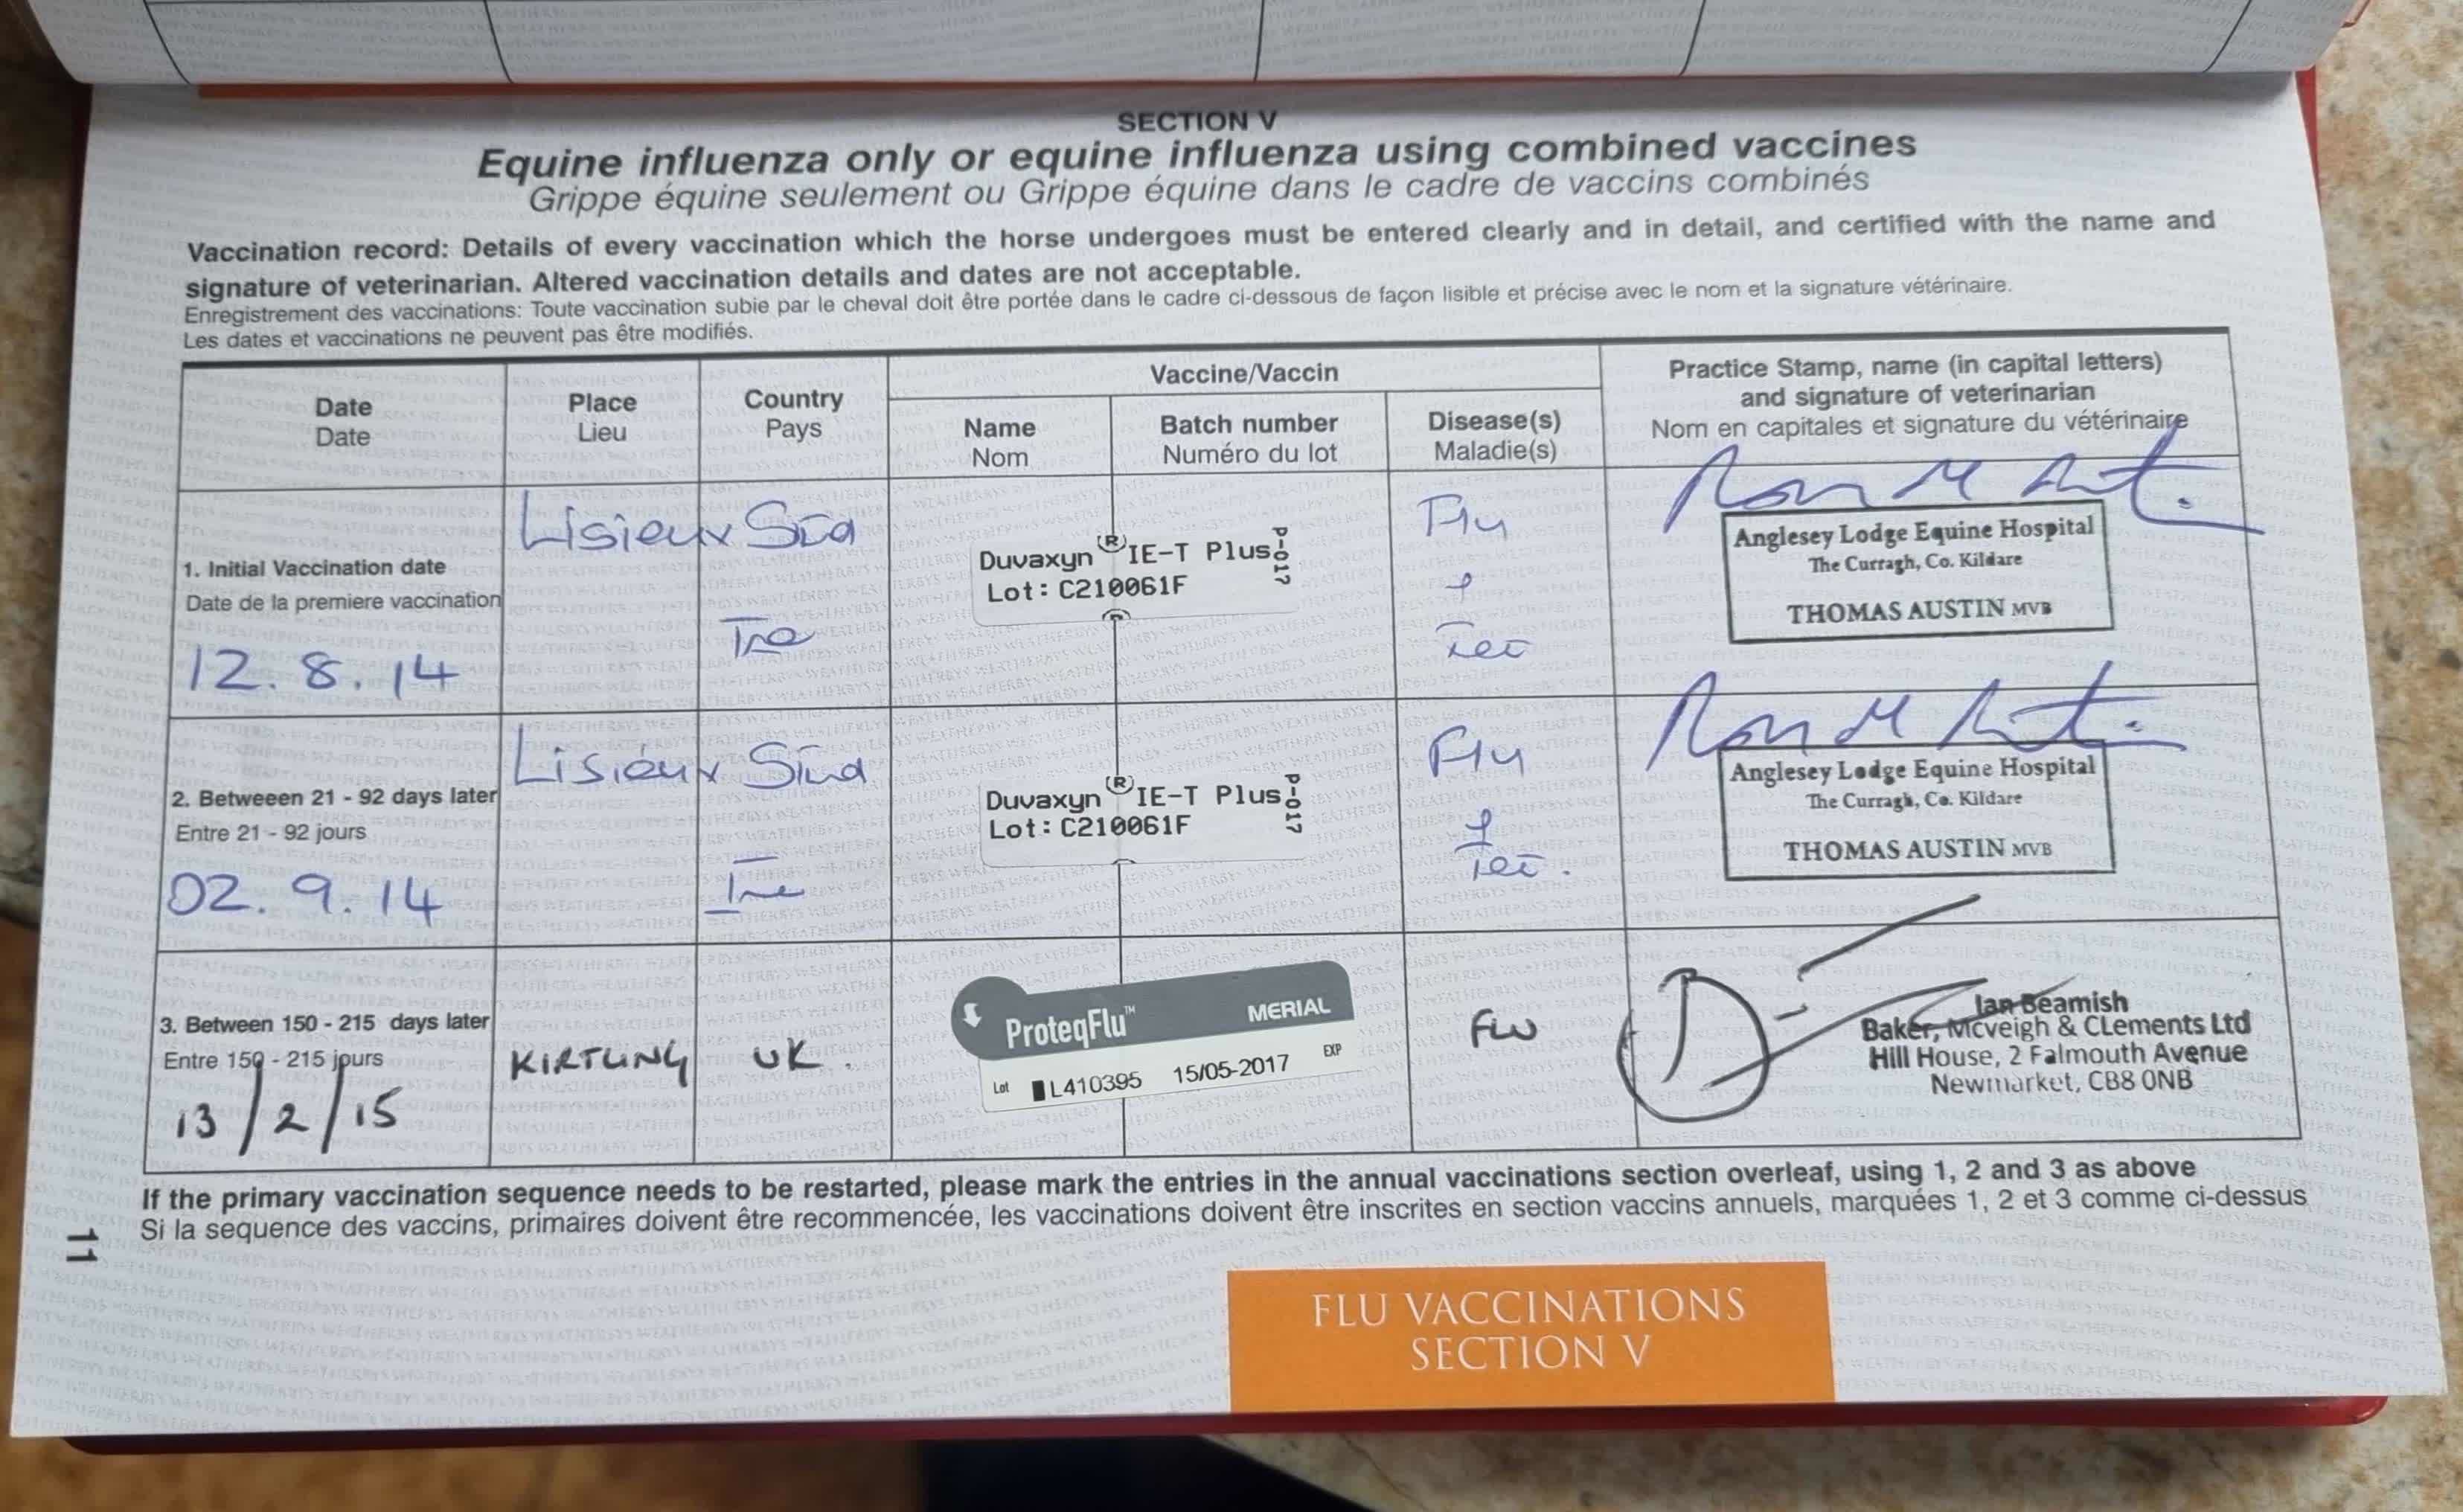 SECTION V
Equine influenza only or equine influenza using combined vaccines
Grippe équine seulement ou Grippe équine dans le cadre de vaccins combinés
Vaccination record: Details of every vaccination which the horse undergoes must be entered clearly and in detail, and certified with the name and
signature of veterinarian. Altered vaccination details and dates are not acceptable.
Enregistrement des vaccinations: Toute vaccination subie par le cheval doit être portée dans le cadre ci-dessous de façon lisible et précise avec le nom et la signature vétérinaire.
Les dates et vaccinations ne peuvent pas être modifiés.
Date
Date
Place
Lieu
Country
Pays
Vaccine/Vaccin
Name
Nom
Batch number
Numéro du lot
Disease(s)
Maladie(s)
Practice Stamp, name (in capital letters)
and signature of veterinarian
Nom en capitales et signature du vétérinaire
1. Initial Vaccination date
Date de la premiere vaccination
12.8.14
Lisieux Stud
Ire
Duvaxyn ® IE-T Plus
Lot: C210061F
P-017
Flu
Tet
Anglesey Lodge Equine Hospital
The Curragh, Co. Kildare
THOMAS AUSTIN MVB
2. Betweeen 21 - 92 days later
Entre 21 - 92 jours
02.9.14
Lisieux Stud
Ire
Duvaxyn ® IE-T Plus
Lot: C210061F
P-017
Flu
Tet.
Anglesey Lodge Equine Hospital
The Curragh, Co. Kildare
THOMAS AUSTIN MVB
3. Between 150 - 215 days later
Entre 150 - 215 jours
13/2/15
KIRTLING
UK.
ProteqFlu™ MERIAL
Lot L410395 15/05-2017 EXP
FLU
Ian Beamish
Baker, Mcveigh & CLements Ltd
Hill House, 2 Falmouth Avenue
Newmarket, CB8 0NB
If the primary vaccination sequence needs to be restarted, please mark the entries in the annual vaccinations section overleaf, using 1, 2 and 3 as above
Si la sequence des vaccins, primaires doivent être recommencée, les vaccinations doivent être inscrites en section vaccins annuels, marquées 1, 2 et 3 comme ci-dessus
11
FLU VACCINATIONS
SECTION V